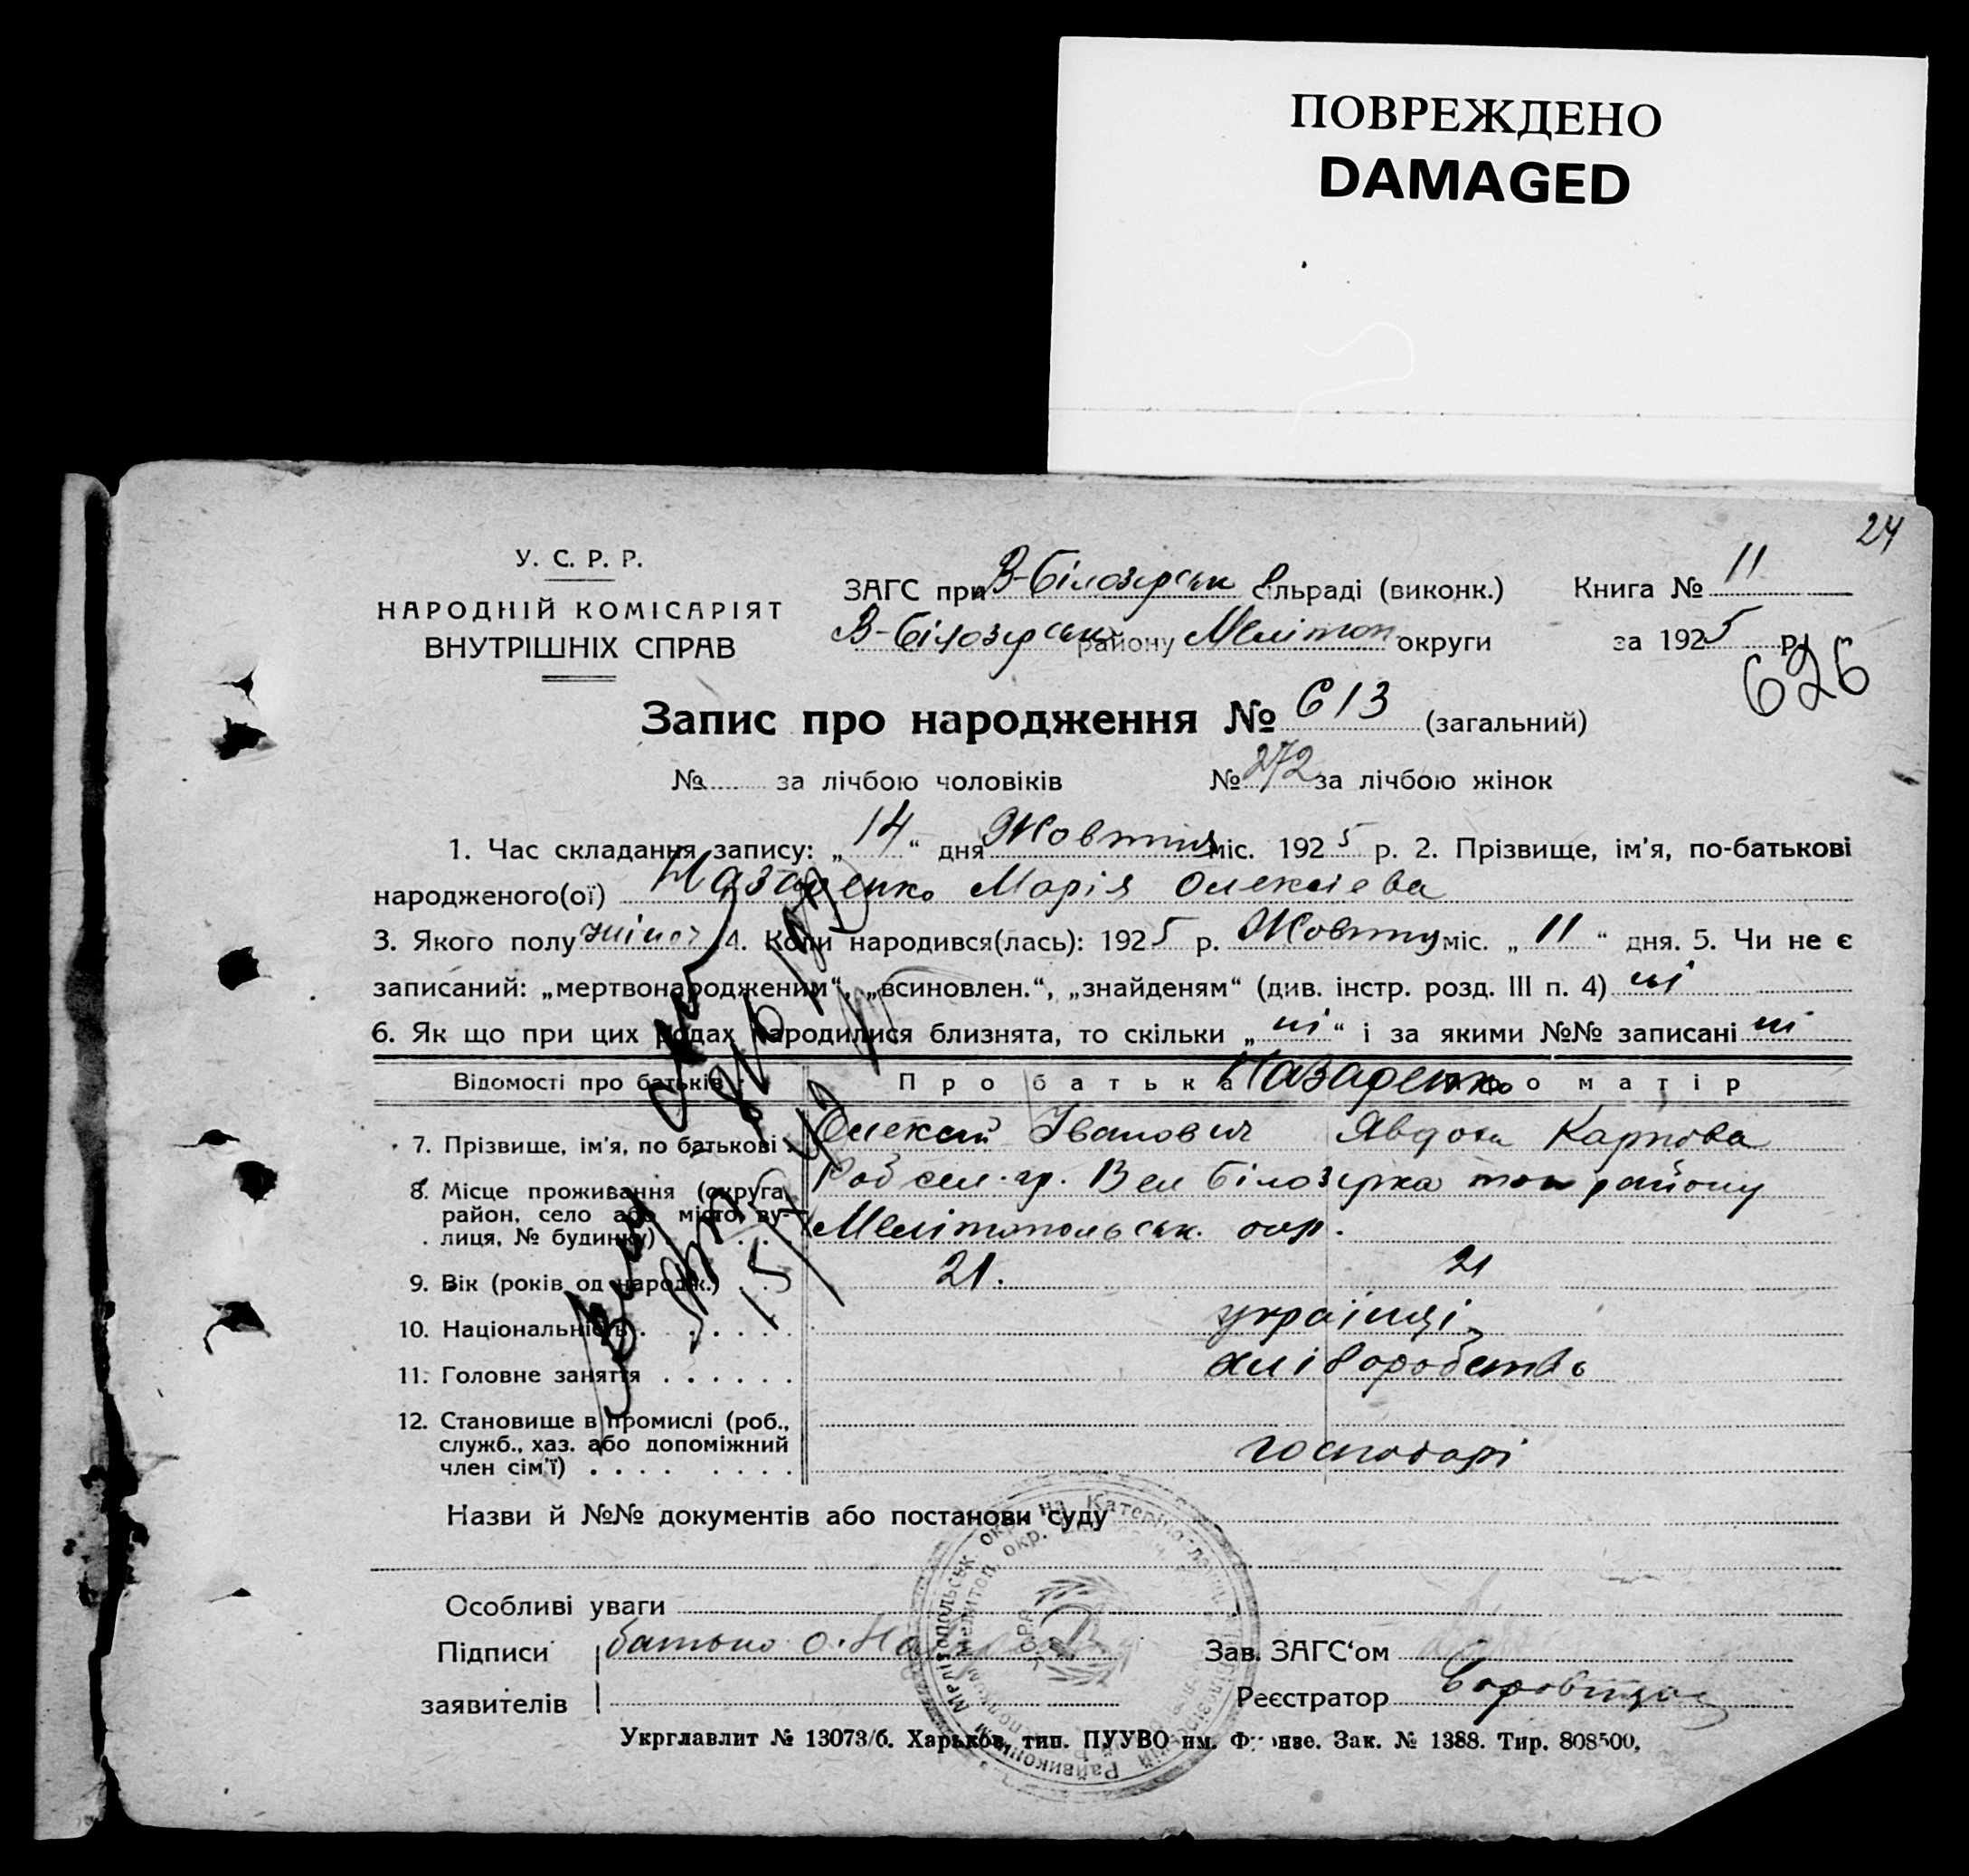 ПОВРЕЖДЕНО
DAMAGED
24
У. С. Р. Р.
НАРОДНІЙ КОМІСАРІЯТ
ВНУТРІШНІХ СПРАВ
ЗАГС при В-Білозерськ сільраді (виконк.) Книга № 11
В-Білозерськ району Мелітоп округи за 1925 р.
626
Запис про народження № 613 (загальний)
№ за лічбою чоловіків № 272 за лічбою жінок
1. Час складання запису: „14“ дня Жовтня міс. 1925 р. 2. Прізвище, ім'я, по-батькові
народженого(ої) Назаренко Марія Олексієва
3. Якого полу жіноч 4. Коли народився(лась): 1925 р. Жовтня міс. „11“ дня. 5. Чи не є
записаний: „мертвонародженим“, „всиновлен.“, „знайденям“ (див. інстр. розд. III п. 4) ні
6. Як що при цих родах народилися близнята, то скільки „ні“ і за якими №№ записані ні
Відомості про батьків: Про батька Про матір
Назаренко
7. Прізвище, ім'я, по батькові Олексій Іванович Явдоха Карпова
8. Місце проживання (округа, район, село або місто, вулиця, № будинку) сел. гр. Вел Білозирка того району
Мелітопольськ. окр.
9. Вік (років од народж.) 21. 21
10. Національність українці
11. Головне заняття хліборобство
12. Становище в промислі (роб., служб., хаз. або допоміжний член сім'ї) господарі
Назви й №№ документів або постанови суду
Особливі уваги
Підписи заявителів батько О. На
Зав. ЗАГС‘ом
Реєстратор
Укрглавлит № 13073/б. Харьков, тип. ПУУВО им. Фрунзе. Зак. № 1388. Тир. 808500.